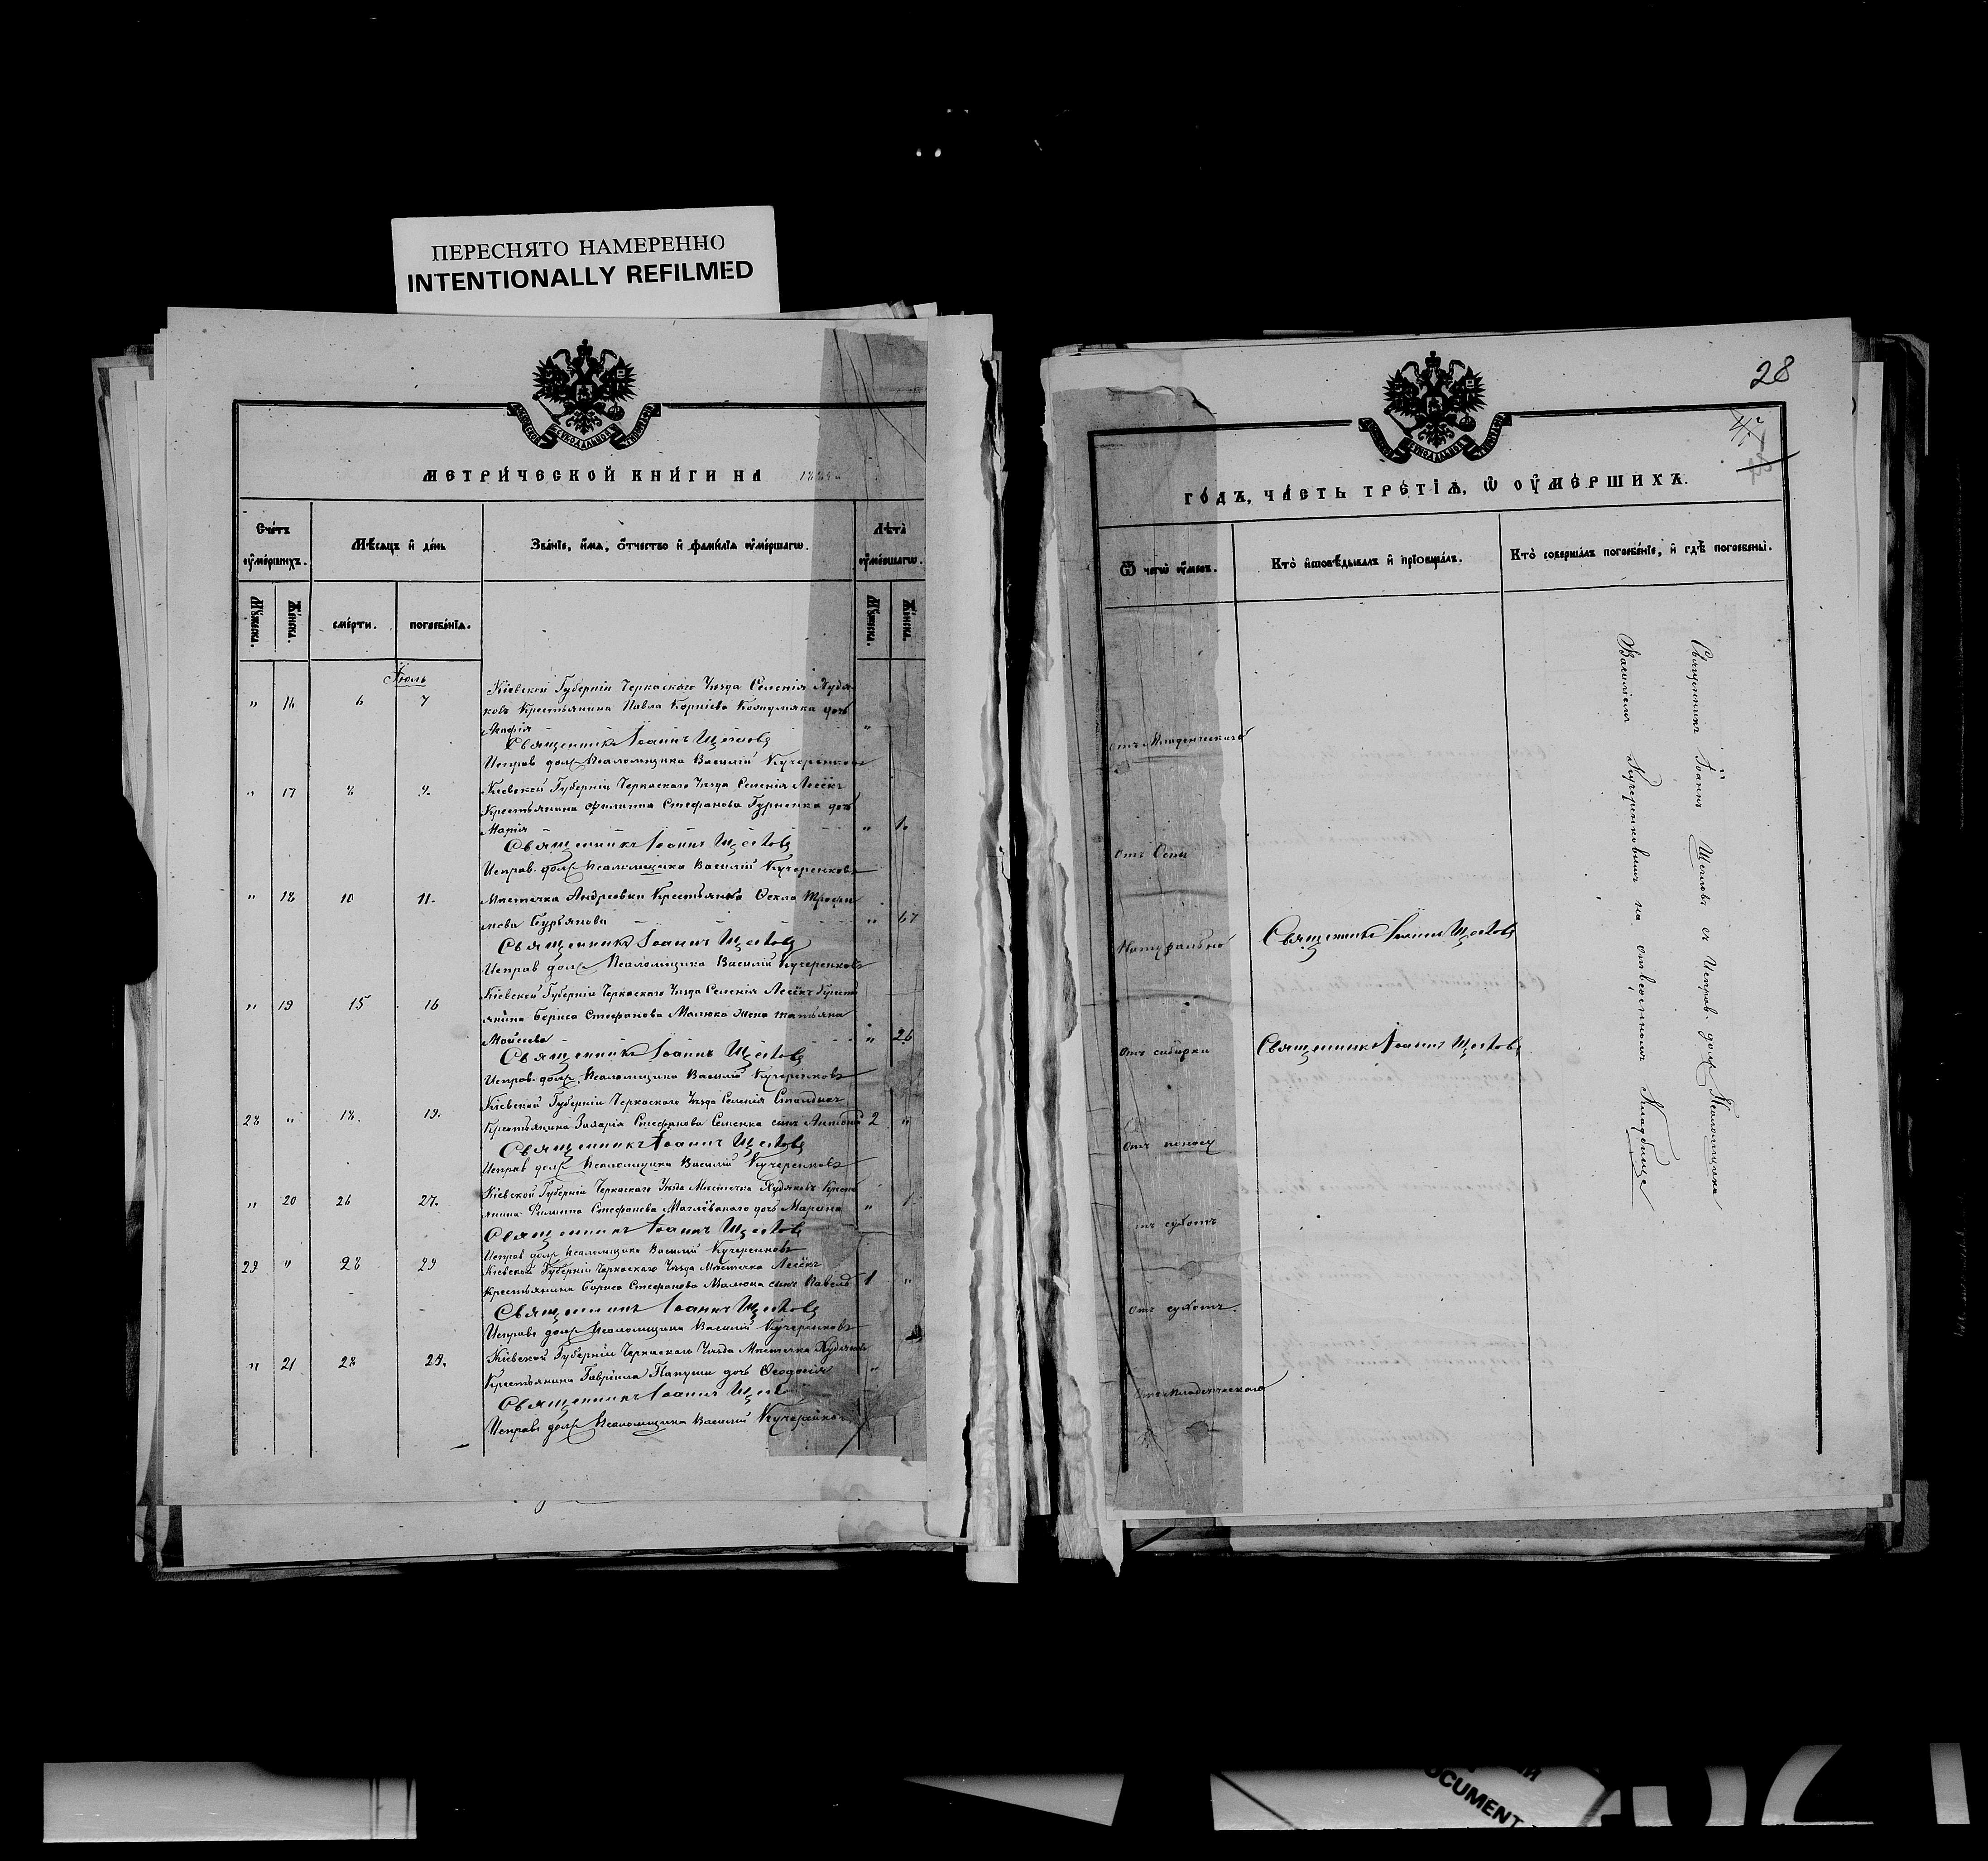 ПЕРЕСНЯТО НАМЕРЕННО
INTENTIONALLY REFILMED
МЕТРИ́ЧЕСКОЙ КНИ́ГИ НА
Сче́тъ ᲂу҆ме́ршихъ.
Мѣ́сяцъ и҆ де́нь
Зва́нїе, и҆́мѧ, ѻ҆́тчество и҆ фами́лїѧ ᲂу҆ме́ршагѡ.
Лѣ́та ᲂу҆ме́ршагѡ.
Мꙋ́жеска.
Же́нска.
сме́рти.
погребе́нїѧ.
Мꙋ́жеска.
Же́нска.
Іюль
" 16 6 7 Кіевской Губерніи Черкаскаго Уѣзда Селенія Худя-
ковъ Крестьянина Павла Корніева дочь "
Священникъ Іоаннъ Щегловъ
Исправ. долж. Псаломщика Василій Кучеренковъ
" 17 8 9. Кіевской Губерніи Черкаскаго Уѣзда Селенія Лесёкъ
Крестьянина Филиппа Стефанова Гурненка дочь
Марія " 1.
Священникъ Іоаннъ Щегловъ
Исправ. долж. Псаломщика Василій Кучеренковъ
" 18 10 11. Мѣстечка Андреевки Крестьянка Ѳекла Трофи
мова Бурьянова " 67
Священникъ Іоаннъ Щегловъ
Исправ долж Псаломщика Василій Кучеренковъ
" 19 15 16 Кіевской Губерніи Черкаскаго Уѣзда Селенія Лесёкъ Крест
янина Бориса Стефанова Малюка жена Татьяна
Мойсеева " 26
Священникъ Іоаннъ Щегловъ
Исправ. долж. Псаломщика Василій Кучеренковъ
28 " 18. 19. Кіевской Губерніи Черкаскаго Уѣзда Селенія
Крестьянина Захарія Стефанова Семенка сынъ Антоній 2 "
Священникъ Іоаннъ Щегловъ
Исправ долж Псаломщика Василій Кучеренковъ
" 20 26 27. Кіевской Губерніи Черкаскаго Уѣзда Мѣстечка Худяковъ Крест
янина Филиппа Стефанова дочь Марина " 1
Священникъ Іоаннъ Щегловъ
Исправ долж Псаломщика Василій Кучеренковъ
29 " 28 29 Кіевской Губерніи Черкаскаго Уѣзда Мѣстечка Лесёкъ
Крестьянина Бориса Стефанова Малюка сынъ Павелъ 1 "
Священникъ Іоаннъ Щегловъ
Исправ долж Псаломщика Василій Кучеренковъ
" 21 28 29. Кіевской Губерніи Черкаскаго Уѣзда Мѣстечка Худяковъ
Крестьянина Гавріила Папуши дочь Ѳеодосія "
Священникъ Іоаннъ
Исправ долж Псаломщика Василій
28
ГО́ДЪ, ЧА́СТЬ ТРЕ́ТЇѦ, Ѡ҆ ОУ҆МЕ́РШИХЪ.
Ѿ чегѡ̀ ᲂу҆́меръ.
Кто̀ и҆сповѣ́дывалъ и҆ прїѡбща́лъ.
Кто̀ соверша́лъ погребе́нїе, и҆ гдѣ̀ погребены̀.
Отъ Младенческаго
Отъ Оспы
Натурально Священникъ Іоаннъ Щегловъ
Отъ сибирки Священникъ Іоаннъ Щегловъ
Отъ поносу
отъ сухотъ
Отъ сухотъ.
Отъ Младенческаго
Священникъ Іоаннъ Щегловъ съ Исправ. долж Псаломщика
Василіемъ Кучеренковымъ на отведенномъ Кладбище
OCUMENT